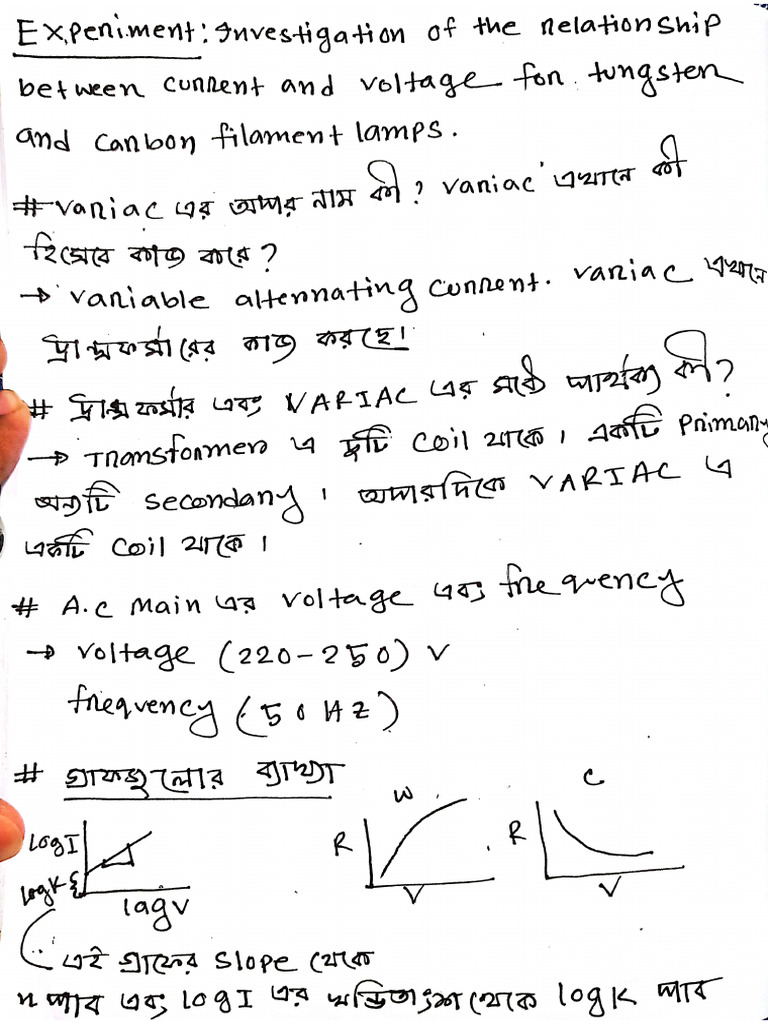 Experiment: Investigation of the relationship
between current and voltage for tungsten
and carbon filament lamps.
# variac এর অপর নাম কী? variac এখানে কী
হিসেবে কাজ করে?
→ variable alternating current. variac এখানে
ট্রান্সফর্মারের কাজ করছে।
# ট্রান্সফর্মার এবং VARIAC এর মধ্যে পার্থক্য কী?
→ Transformer এ দুটি coil থাকে। একটি primary
অন্যটি secondary। অপরদিকে VARIAC এ
একটি coil থাকে।
# A.c main এর voltage এবং frequency
→ voltage (220-250) V
frequency (50 HZ)
# গ্রাফগুলোর ব্যাখ্যা
logI
logK
logV
W
R
V
C
R
V
এই গ্রাফের slope থেকে
n পাব এবং logI এর খন্ডিতাংশ থেকে logK পাব